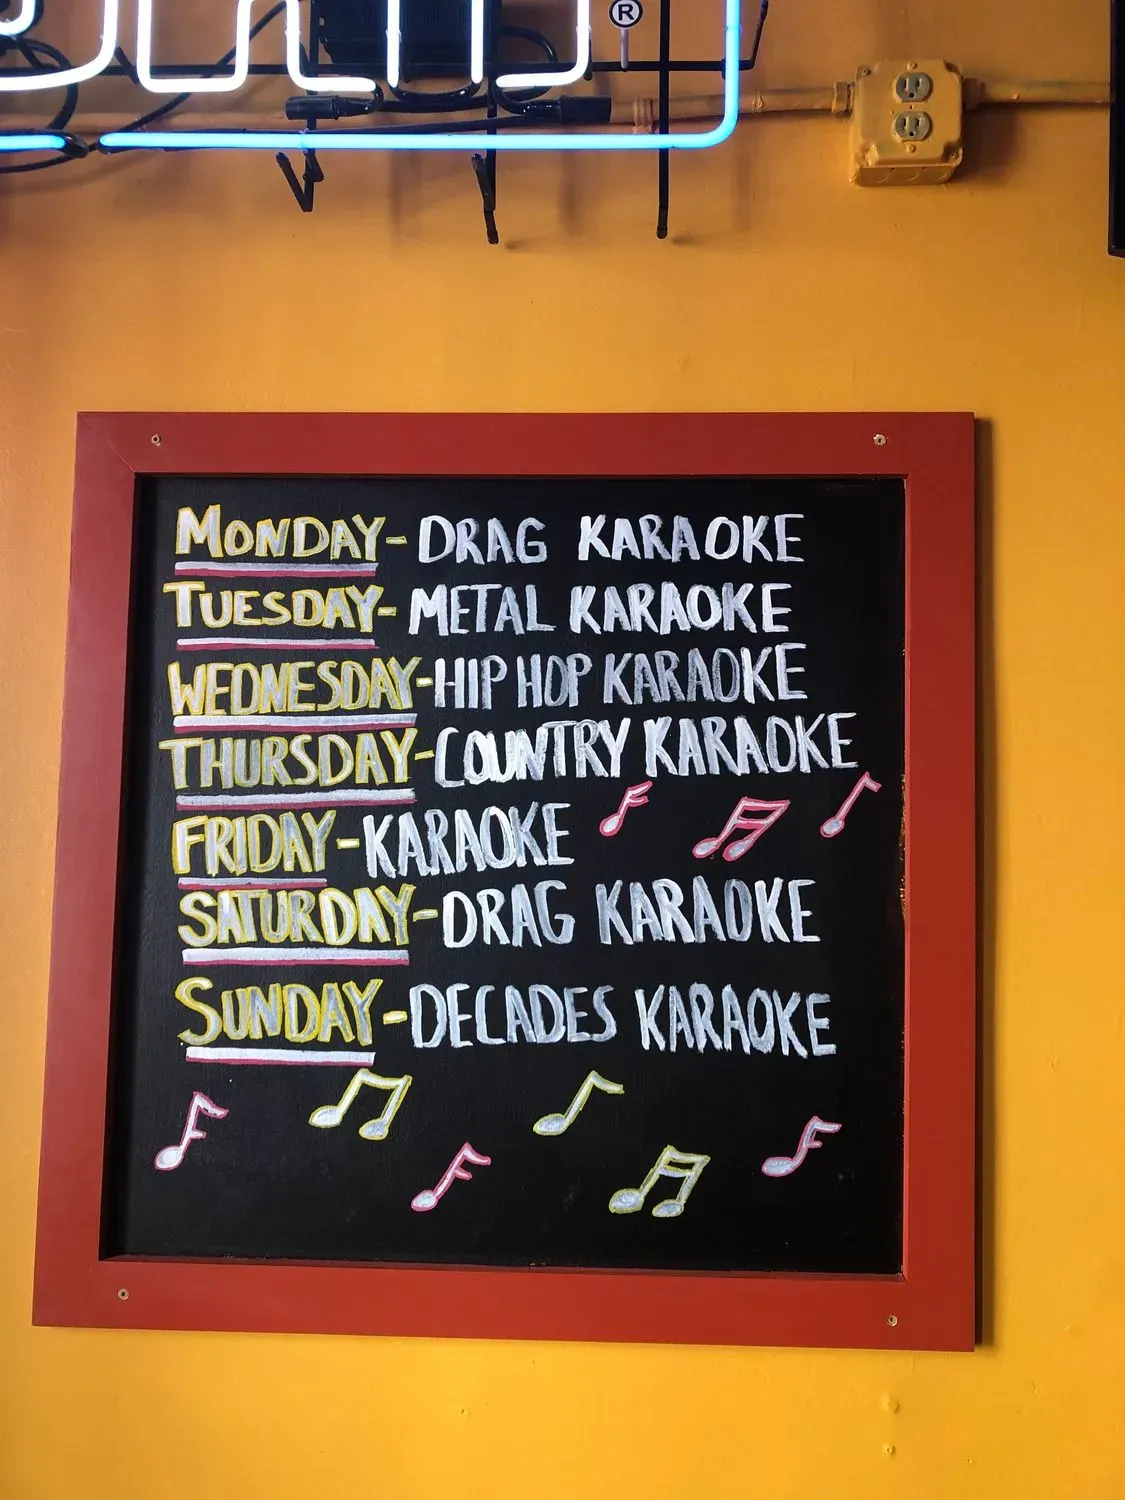 ®
MONDAY- DRAG KARAOKE
TUESDAY- METAL KARAOKE
WEDNESDAY-HIP HOP KARAOKE
THURSDAY-COUNTRY KARAOKE
FRIDAY-KARAOKE
SATURDAY-DRAG KARAOKE
SUNDAY-DECADES KARAOKE